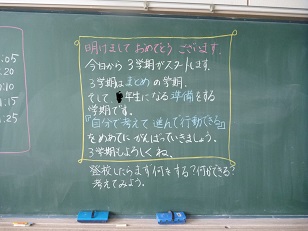 明けまして おめでとう ございます。
今日から3学期がスタートします。
3学期はまとめの学期。
そして 年生になる準備をする
学期です。
『自分で考えて進んで行動できる』
をめあてにがんばっていきましょう。
3学期もよろしくね。
登校したらまず何をする?何ができる?
考えてみよう。
:05
:20
:10
:15
:25